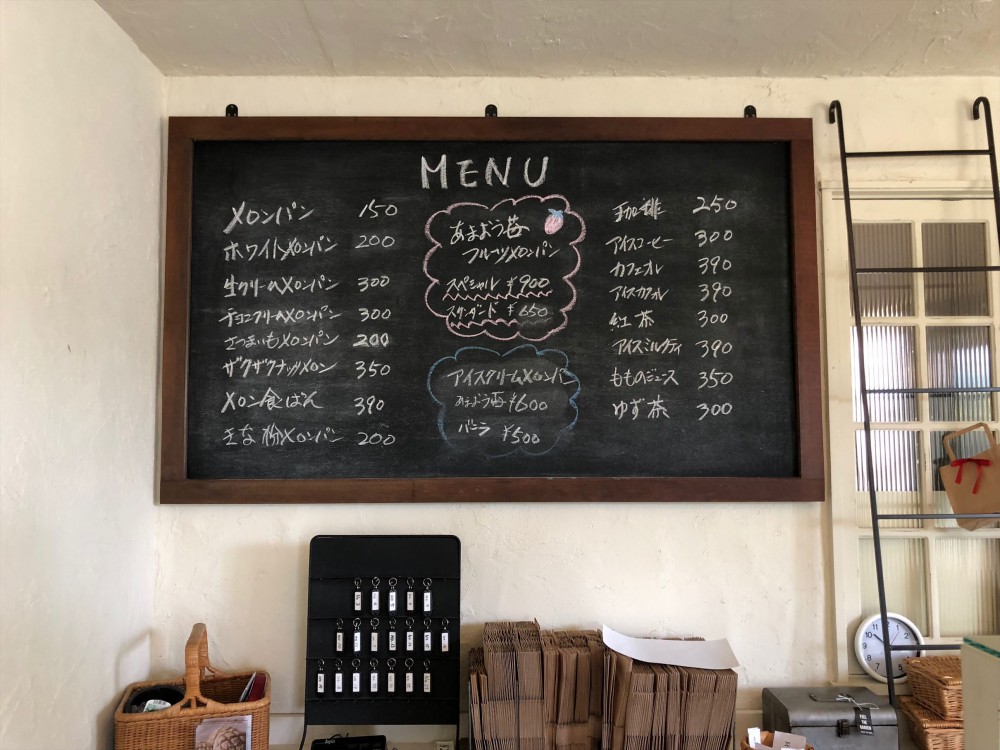 MENU
メロンパン 150
ホワイトメロンパン 200
生クリームメロンパン 300
チョコクリームメロンパン 300
さつまいもメロンパン 200
ザクザクナッツメロン 350
メロン食ぱん 390
きな粉メロンパン 200
あまおう苺
フルーツメロンパン
スペシャル ¥900
スタンダード ¥650
アイスクリームメロンパン
あまおう苺 ¥600
バニラ ¥500
珈琲 250
アイスコーヒー 300
カフェオレ 390
アイスカフェオレ 390
紅茶 300
アイスミルクティ 390
もものジュース 350
ゆず茶 300